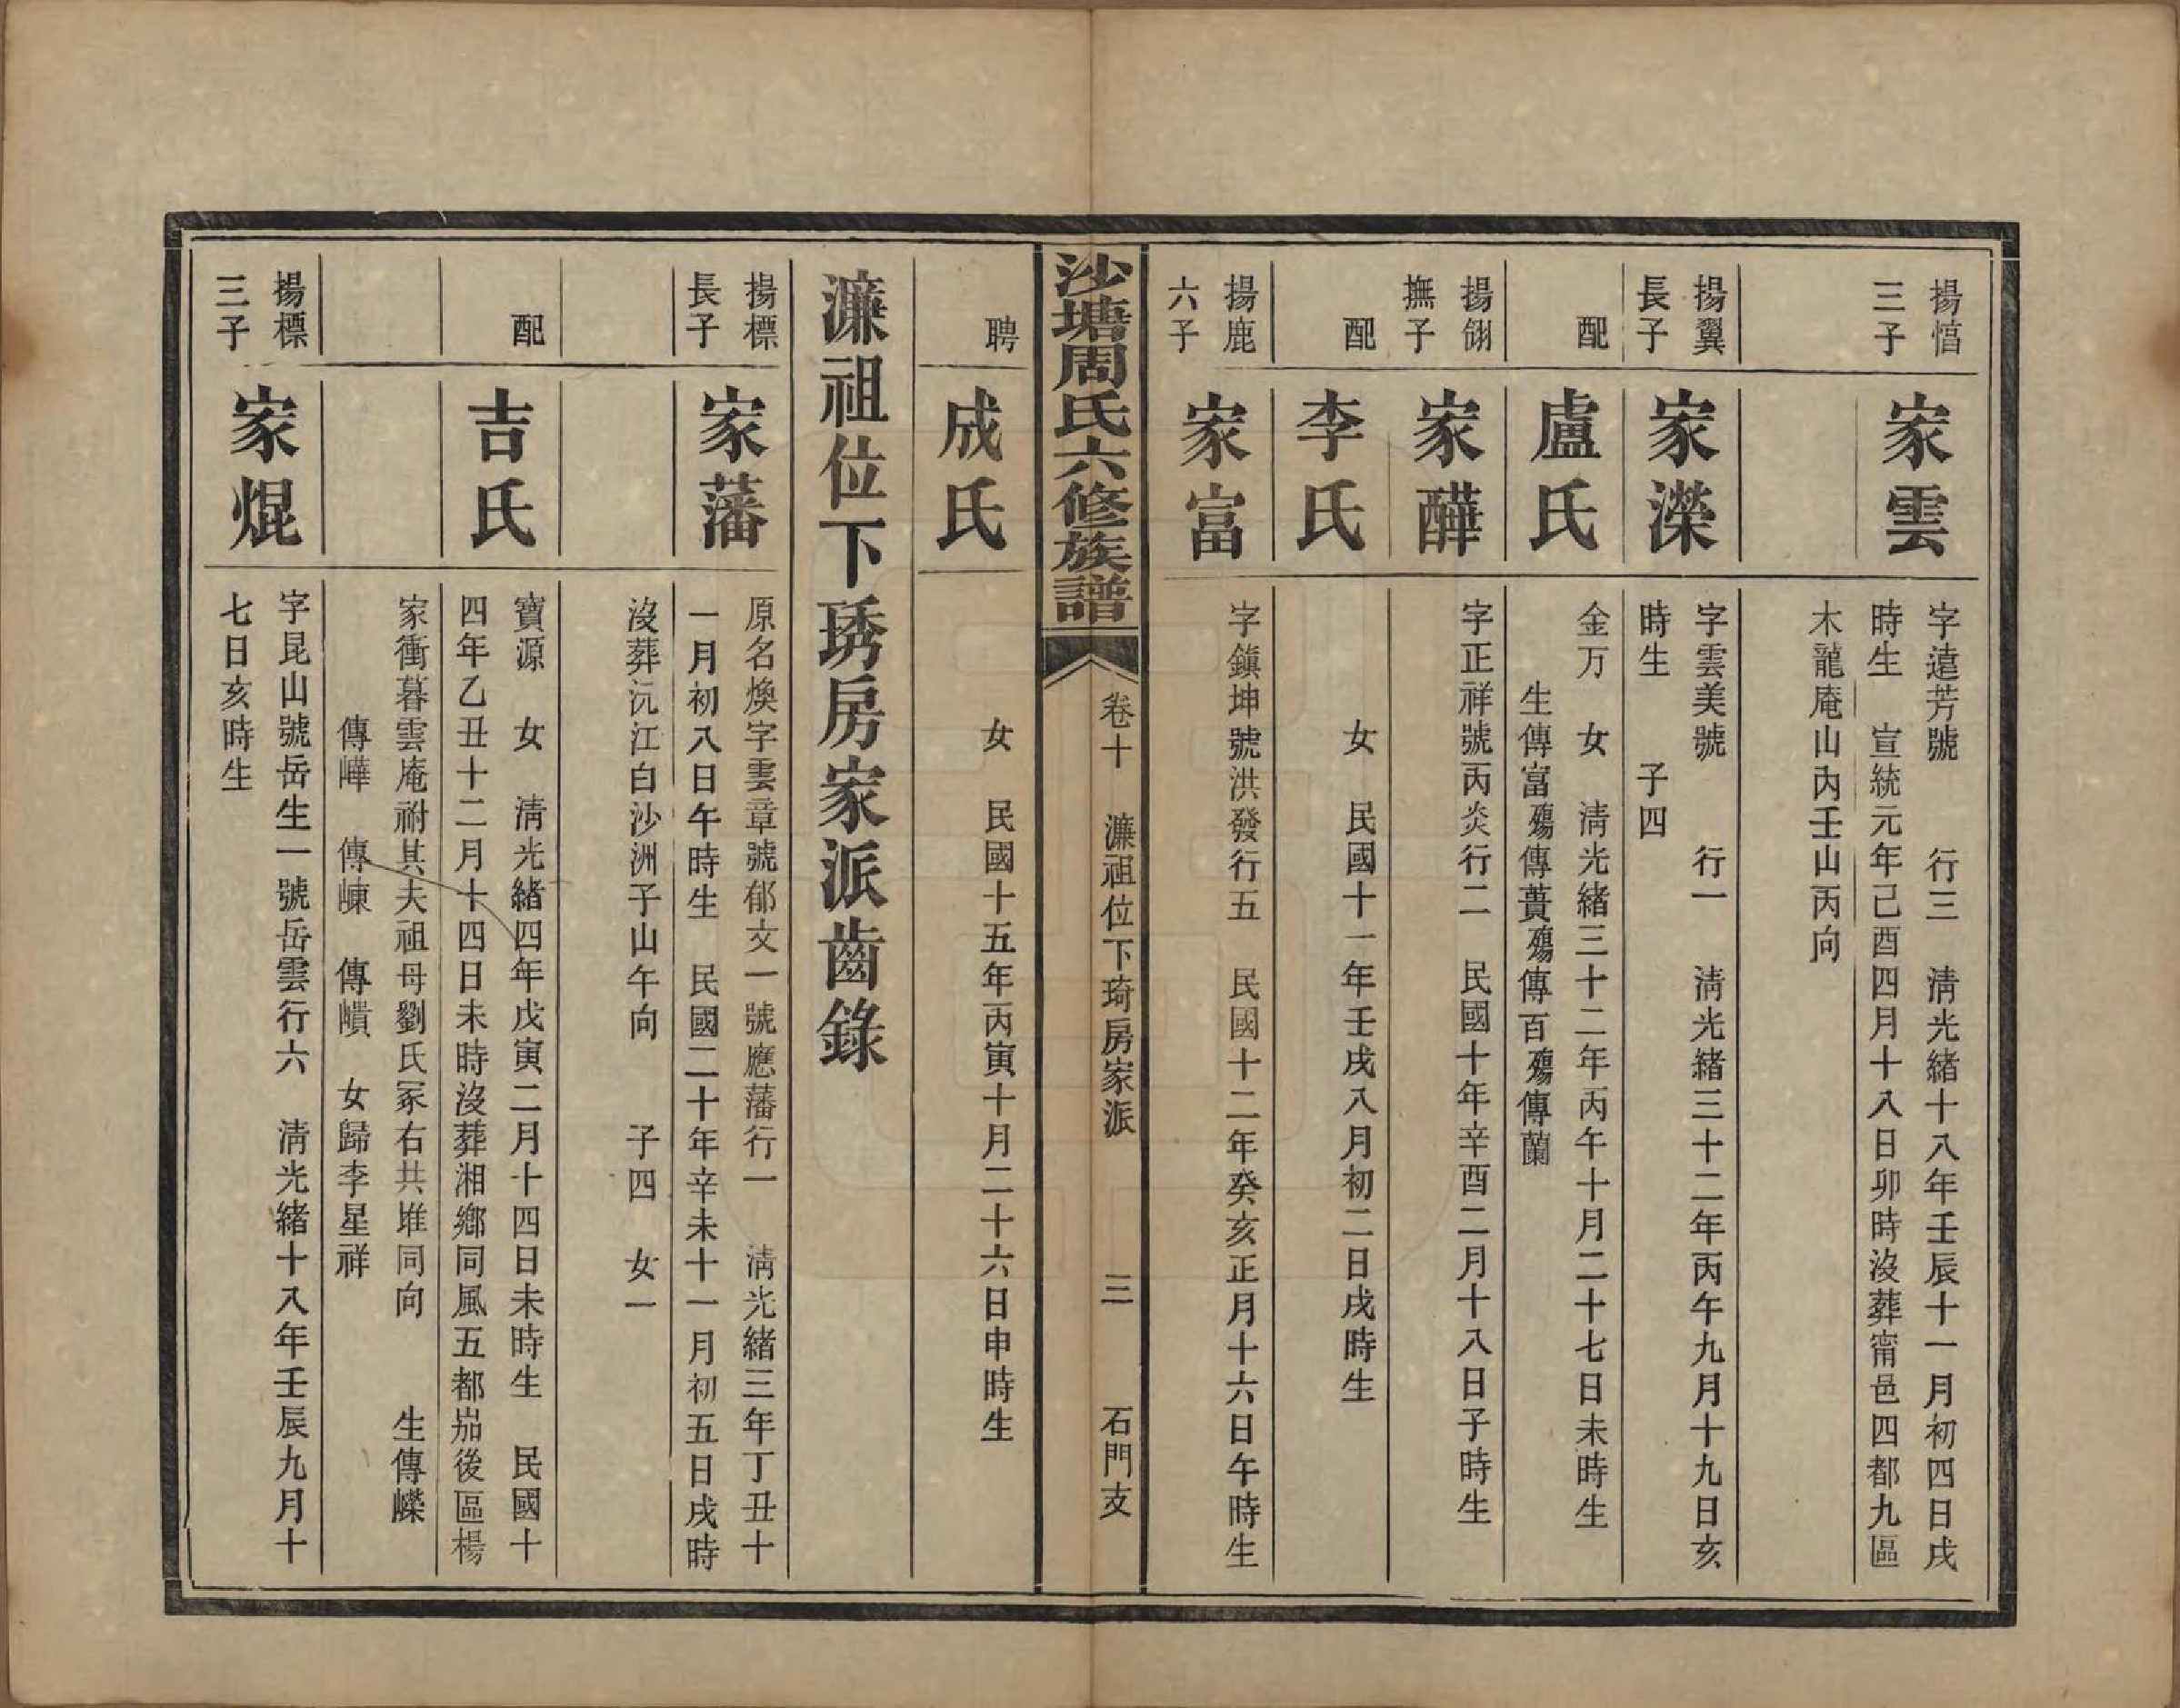 揚
三子
家雲
字遠芳號　　行三　清光緒十八年壬辰十一月初四日戌
時生　宣統元年己酉四月十八日卯時沒葬甯邑四都九區
木龍庵山內壬山丙向
揚翼
長子
家濚
字雲美號　　行一　清光緒三十二年丙午九月十九日亥
時生　　子四
配
盧氏
金万　女　清光緒三十二年丙午十月二十七日未時生
生傳富殤傳蕢殤傳百殤傳蘭
揚翎
撫子
家
字正祥號丙炎行二　民國十年辛酉二月十八日子時生
配
李氏
女　民國十一年壬戌八月初二日戌時生
揚鹿
六子
家富
字鎮坤號洪發行五　民國十二年癸亥正月十六日午時生
沙塘周氏六修族譜
卷十　濂祖位下琦房家派　　三　　石門支
聘
成氏
女　民國十五年丙寅十月二十六日申時生
濂祖位下琇房家派齒錄
揚標
長子
家藩
原名煥字雲章號郁文一號應藩行一　清光緒三年丁丑十
一月初八日午時生　民國二十年辛未十一月初五日戌時
沒葬沅江白沙洲子山午向　　子四　女一
配
吉氏
寶源　女　清光緒四年戊寅二月十四日未時生　民國十
四年乙丑十二月十四日未時沒葬湘鄉同風五都崗後區楊
家衝暮雲庵祔其夫祖母劉氏冢右共堆同向　　生傳嶸
傳嶂　傳崠　傳嶾　女歸李星祥
揚標
三子
家焜
字昆山號岳生一號岳雲行六　清光緒十八年壬辰九月十
七日亥時生